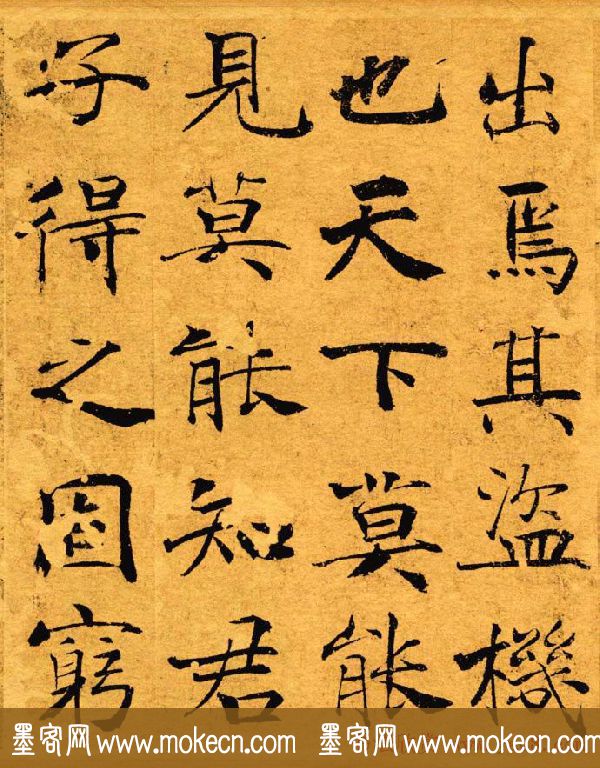 出焉其盜機
也天下莫能
見莫能知君
子得之固窮
墨客网 www.mokecn.com 墨客网 www.mokecn.com